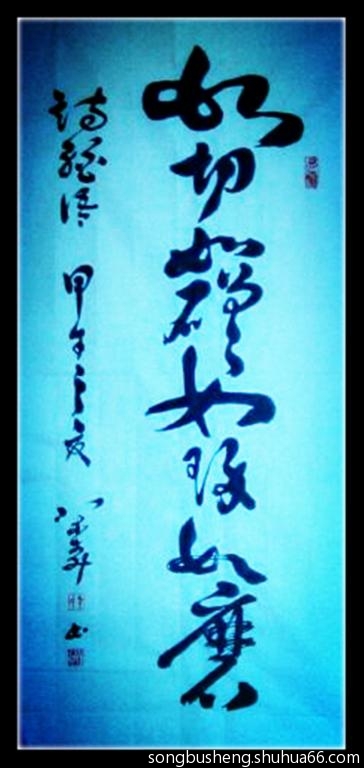 如切如磋如琢如磨
诗經 甲午之夏 书
songbusheng.shuhua66.com